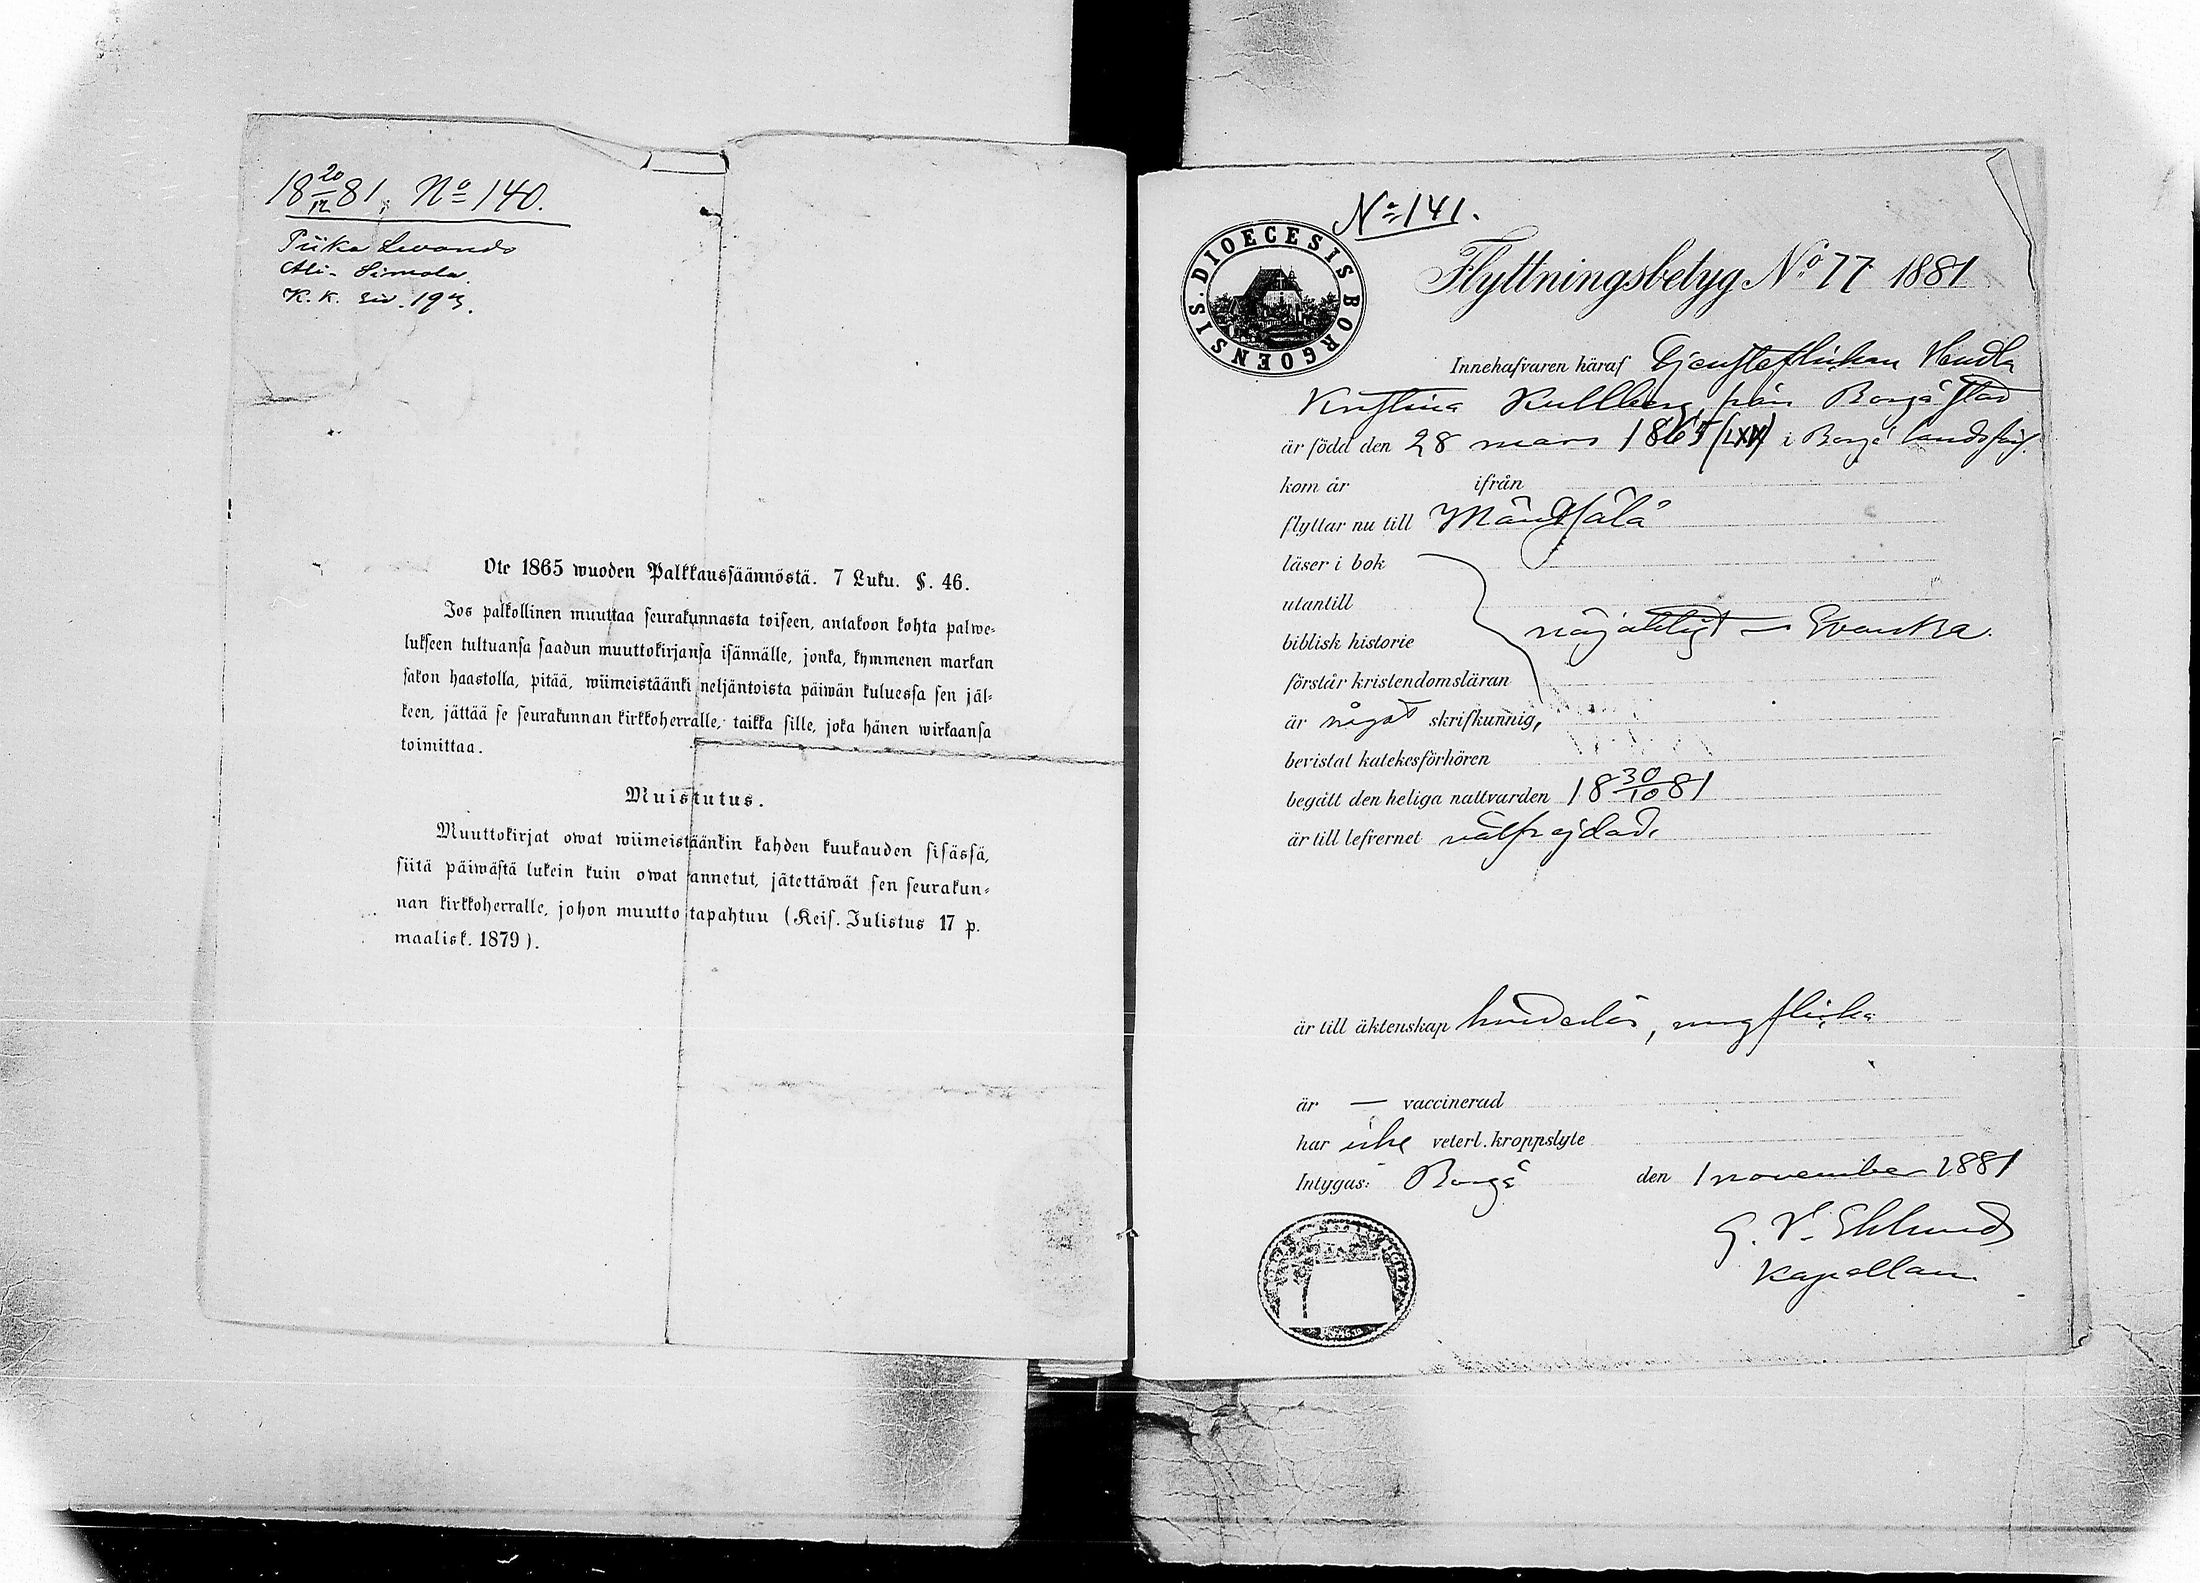 18 20/12 81, No 140.
Piika Levando
Ali-Simola.
K. k. siv. 193.
Ote 1865 wuoden Palkkaussäännöstä. 7 Luku. §. 46.
Jos palkollinen muuttaa seurakunnasta toiseen, antakoon kohta palwe-
lukseen tultuansa saadun muuttokirjansa isännälle, jonka, kymmenen markan
sakon haastolla, pitää, wiimeistäänki neljäntoista päiwän kuluessa sen jäl-
keen, jättää se seurakunnan kirkkoherralle, taikka sille, joka hänen wirkaansa
toimittaa.
Muistutus.
Muuttokirjat owat wiimeistäänkin kahden kuukauden sisässä,
siitä päiwästä lukein kuin owat annetut, jätettäwät sen seurakun-
nan kirkkoherralle, johon muutto tapahtuu (Keis. Julistus 17 p.
maalisk. 1879).
No 141.
DIOECESIS BORGOENSIS.
Flyttningsbetyg No 77 1881
Innehafvaren häraf Tjensteflickan Hedda
Kristina Kullberg, från Borgå stad
är född den 28 mars 1865 (LXV) i Borgå landsförs.
kom år ifrån
flyttar nu till Mäntsälä
läser i bok
utantill
biblisk historie nöjaktigt — Svenska.
förstår kristendomsläran
är något skrifkunnig,
bevistat katekesförhören
begått den heliga nattvarden 18 30/10 81
är till lefvernet välfrejdad,
är till äktenskap hinderlös, ung flicka
är — vaccinerad
har icke veterl. kroppslyte
Intygas: Borgå den 1 november 1881
G. V. Eklund
Kapellan